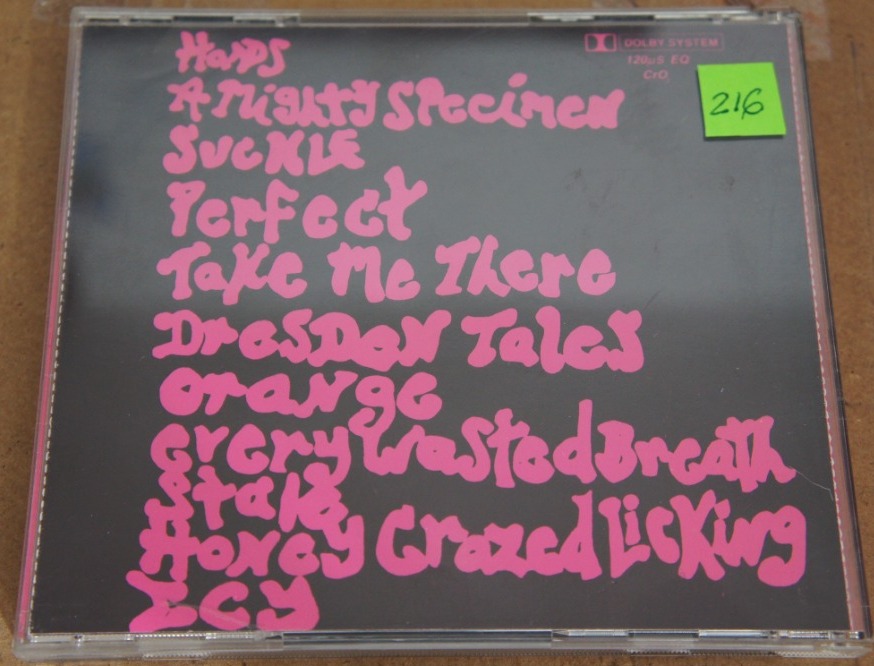 Hands
DOLBY SYSTEM
120µS EQ
CrO₂
A Mighty Specimen
216
Suckle
Perfect
Take Me There
Dresden Tales
Orange
every wasted Breath
Stale
Honey Crazed Licking
Icy